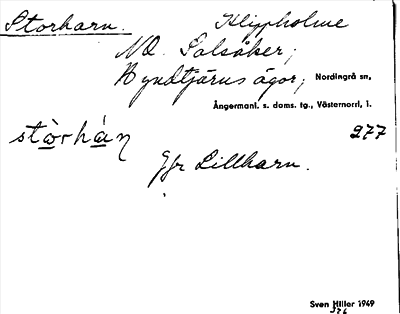 Storharn. Klippholme
NO. Salsåker,
Ryndtjärns ägor, Nordingrå sn,
Ångermanl. s. doms. tg., Västernorrl. l.
stòrhàn 277
Jfr Lillharn.
Sven Hiller 1949